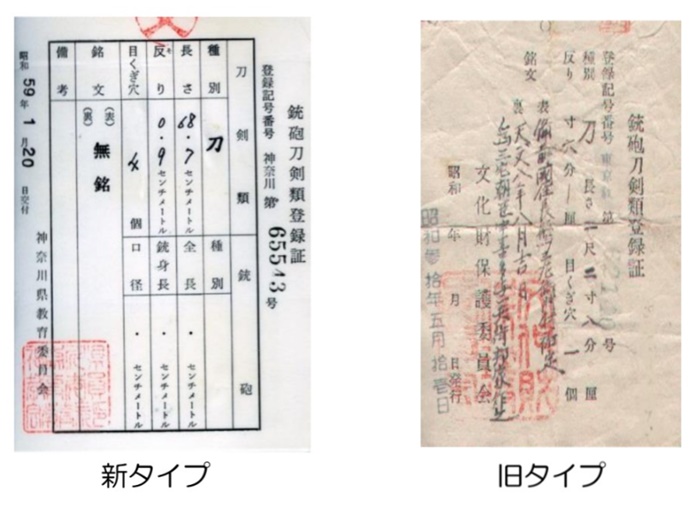 銃砲刀剣類登録証
登録記号番号 神奈川 第 65543 号
刀剣類
銃砲
種別 刀
種別
長さ 68.7 センチメートル
全長 ・ センチメートル
反り 0.9 センチメートル
銃身長 ・ センチメートル
目くぎ穴 4 個
口径 ・ センチメートル
銘文 (表) 無銘
(裏)
備考
昭和 59 年 1 月 20 日交付
神奈川県教育委員会
新タイプ
銃砲刀剣類登録証
登録記号番号 東京 第 号
種別 刀 長さ 一尺 二寸 八分 厘
反り 寸 穴分 厘 目くぎ穴 一 個
銘文 表
裏 天文八年八月吉日
文化財保護委員会
昭和 年 月 日発行
昭和参拾年五月拾壱日
旧タイプ